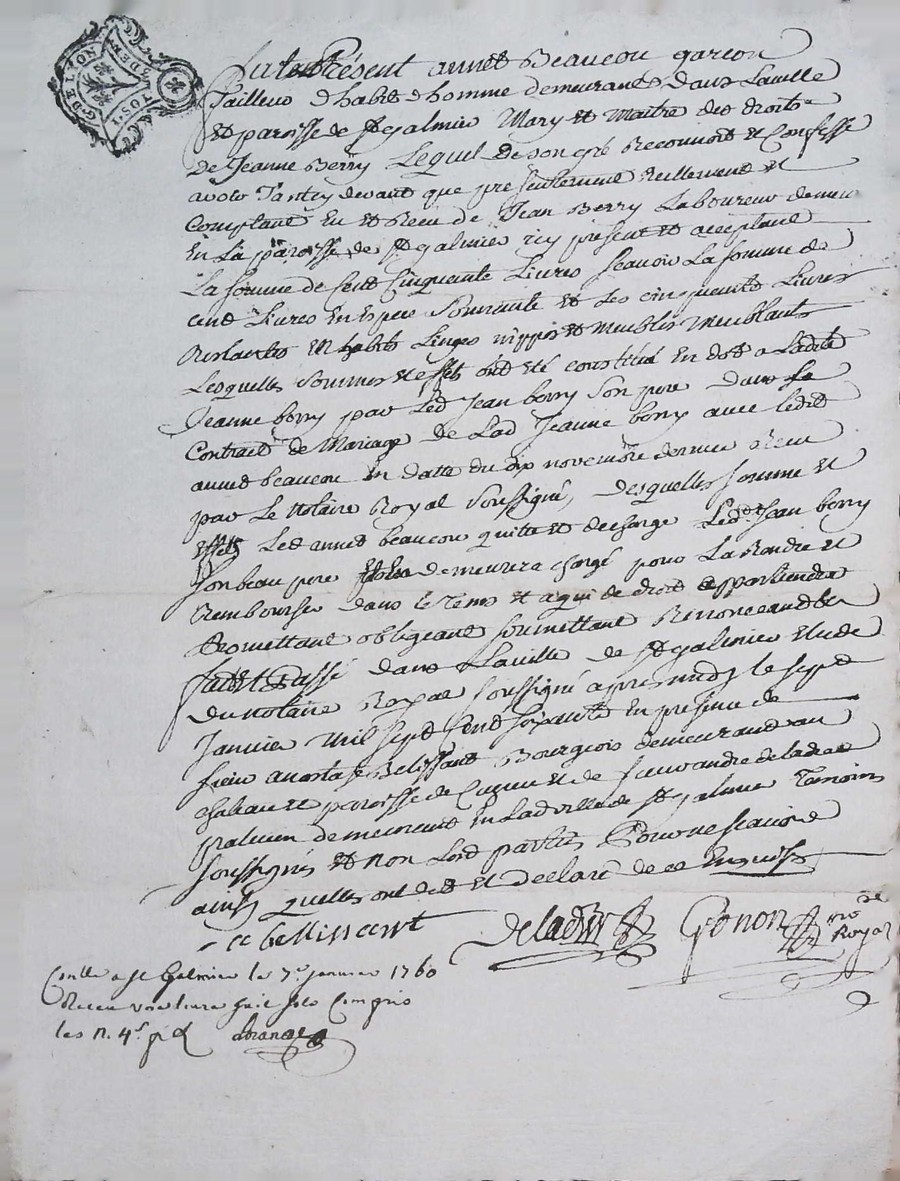 G. DE LYON
Fut Présent annet Beaucou garçon
Tailleur d'habit d'homme demeurant dans Laville
et paroisse de St galmier Mary et Maitre des droits
de Jeanne Berry Lequel de son gré Reconnoit et Confesse
avoir Tant cy devant que presentement Reellement et
Comptant Eu et Receu de Jean Berry Laboureur demeu
En La paroisse de St galmier icy present et acceptant
La somme de Cent Cinquante Livres scavoir La somme de
cent Livres En Espece Sonnante et Les cinquante Livres
Restantes En habits Linges nippes et meubles meublants
Lesquelles Sommes et effets ont eté constitué En dot a Ladite
Jeanne berry par Led Jean berry Son pere dans Le
Contrat de Mariage de Lad Jeanne berry avec Ledit
annet beaucou En datte du dix novembre dernier Receu
par Le Notaire Royal Soussigné, desquelles somme et
effets Led annet beaucou quitte et decharge Led Jean berry
son beau pere demeurera chargé pour La Rendre et
Rembourser dans le Tems et a qui de droit appartiendra
Promettant obligeant soumettant Renonceant &c
fait et Passé dans Laville de St galmier Etude
du Notaire Royal soussigné apres midy le sept
Janvier Mil sept Cent soixante En presence de
sieur Belissant Bourgeois demeurant au
chateau et paroisse de et de sieur andre deladret
praticien demeurant En Ladville de St galmier Temoins
soussignés et Non Lesd parties Pour ne scavoir
ainsy quelles ont dit et declaré de ce Enquises
Deladret Gonon no re Royal
Conlle a St Galmier le 7e janvier 1760
Receu une livre huit sols Compris
les n. 4s p d